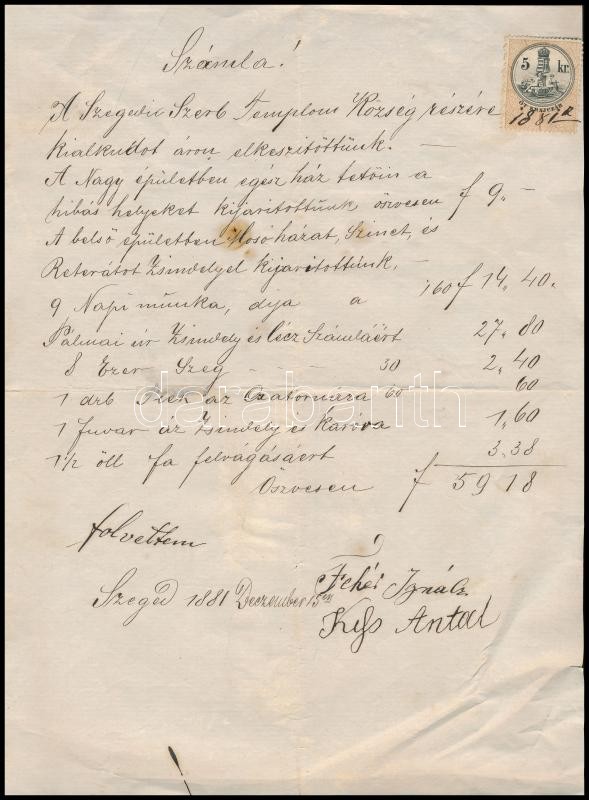 Számla!
5 kr.
1881
A Szegedii Szerb Templom Község részére
kialkudot áron elkeszitöttünk. —
A Nagy épületben egész ház tetöin a
hibás helyeket kijaritottunk öszvesen f 9. —
A belsö épületben Mosó házat, Szinet, és
Reterátot Zsindelyel kijaritottunk, —
9 Napi munka, dija a 160 f 14. 40.
Pálmai úr Zsindely és lécz Számláért 27. 80
8 Ezer Szeg - - - 30 2. 40
1 drb az Csatornára 60 60
1 fuvar áz Zsindely és Karóra 1,60
1 1/2 öll fa felvágásáért 3.38
Öszvesen f 59 18
darabanth
folvettem
Szeged 1881 Deczember 15én
Fehér Ignátz
Kiss Antal